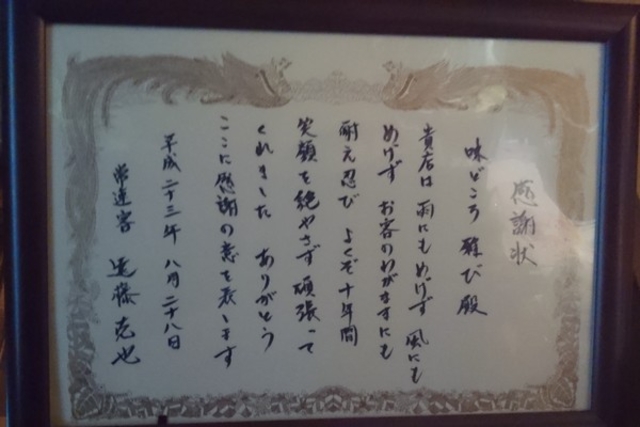 感謝状
味どころ 雅び殿
貴店は 雨にもめげず 風にも
めげず お客のわがままにも
耐え忍び よくぞ十年間
笑顔を絶やさず 頑張って
くれました ありがとう
ここに感謝の意を表します
平成二十三年 八月二十八日
常連客 遠藤克也